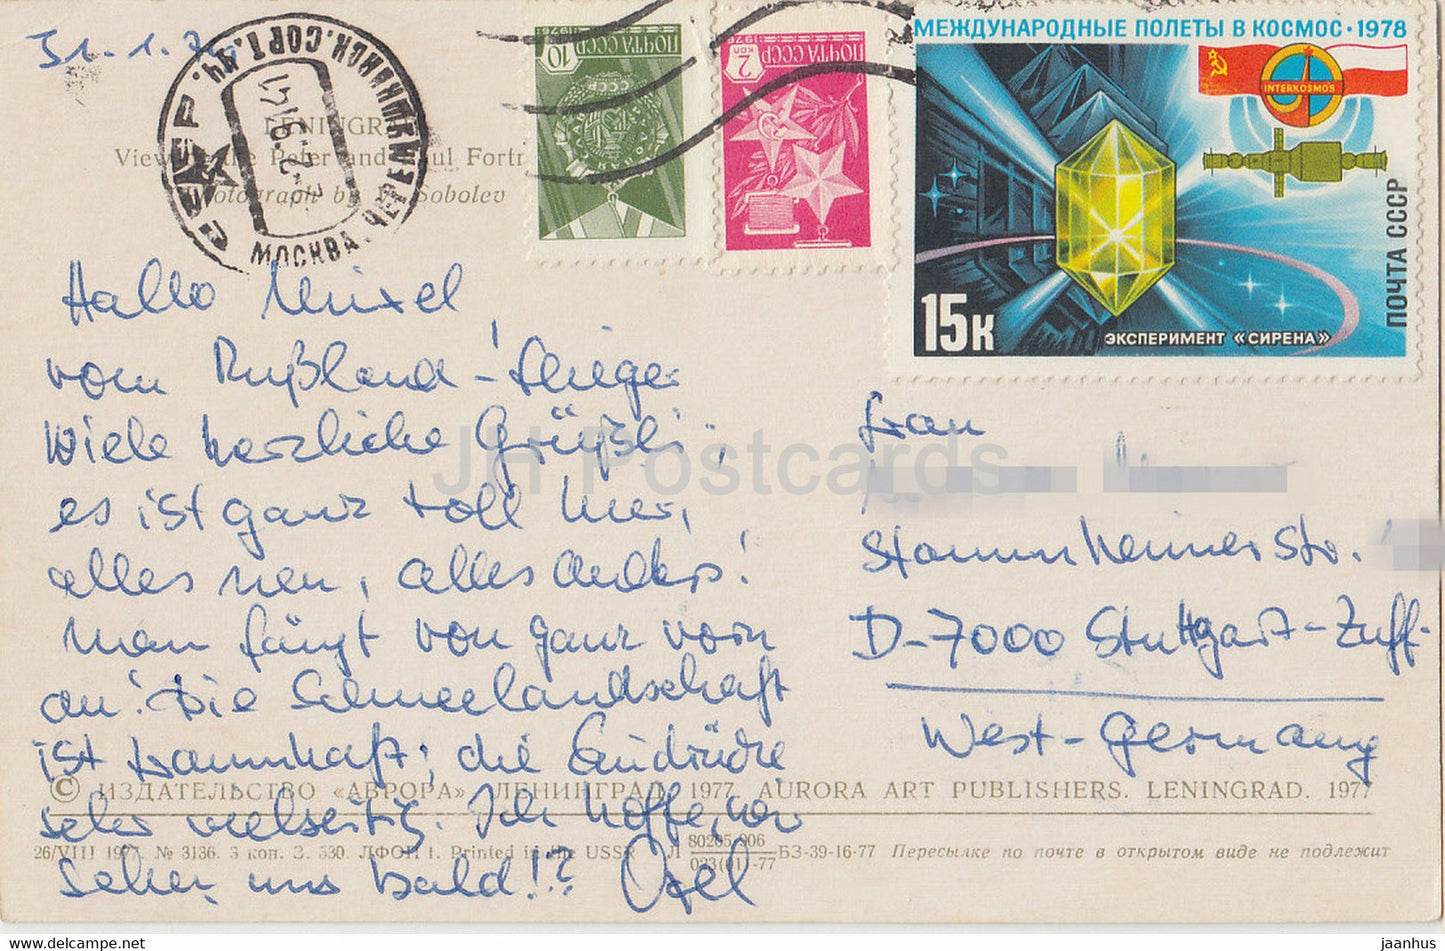 31.1.7
ПОЧТА СССР 1976
10
СССР
ПОЧТА СССР 1976
2 КОП
МЕЖДУНАРОДНЫЕ ПОЛЕТЫ В КОСМОС • 1978
INTERKOSMOS
ПОЧТА СССР
15к
ЭКСПЕРИМЕНТ «СИРЕНА»
СОРТ.
МОСКВА
LENINGR
View the Peter and Paul Fortr
Photograph by Sobolev
Hallo
vom Rußland-Flieger
viele herzliche Grüßli;
es ist ganz toll hier,
alles neu, alles anders!
Man fängt von ganz vorn
an! Die Schneelandschaft
ist traumhaft; die Eindrücke
sehr vielseitig. Ich hoffe, wir
sehen uns bald!? Axel
Frau
Stammheimer Str.
D-7000 Stuttgart-Zuff.
West-Germany
© ИЗДАТЕЛЬСТВО «АВРОРА» ЛЕНИНГРАД. 1977. AURORA ART PUBLISHERS. LENINGRAD. 1977
26/VIII 1977. № 3136. 3 коп. З. 530. ЛФОП 1. Printed in the USSR Л 80205-906 / 023(01)-77 БЗ-39-16-77 Пересылке по почте в открытом виде не подлежит
JH Postcards
https://www.jaanhus.com
jaanhus